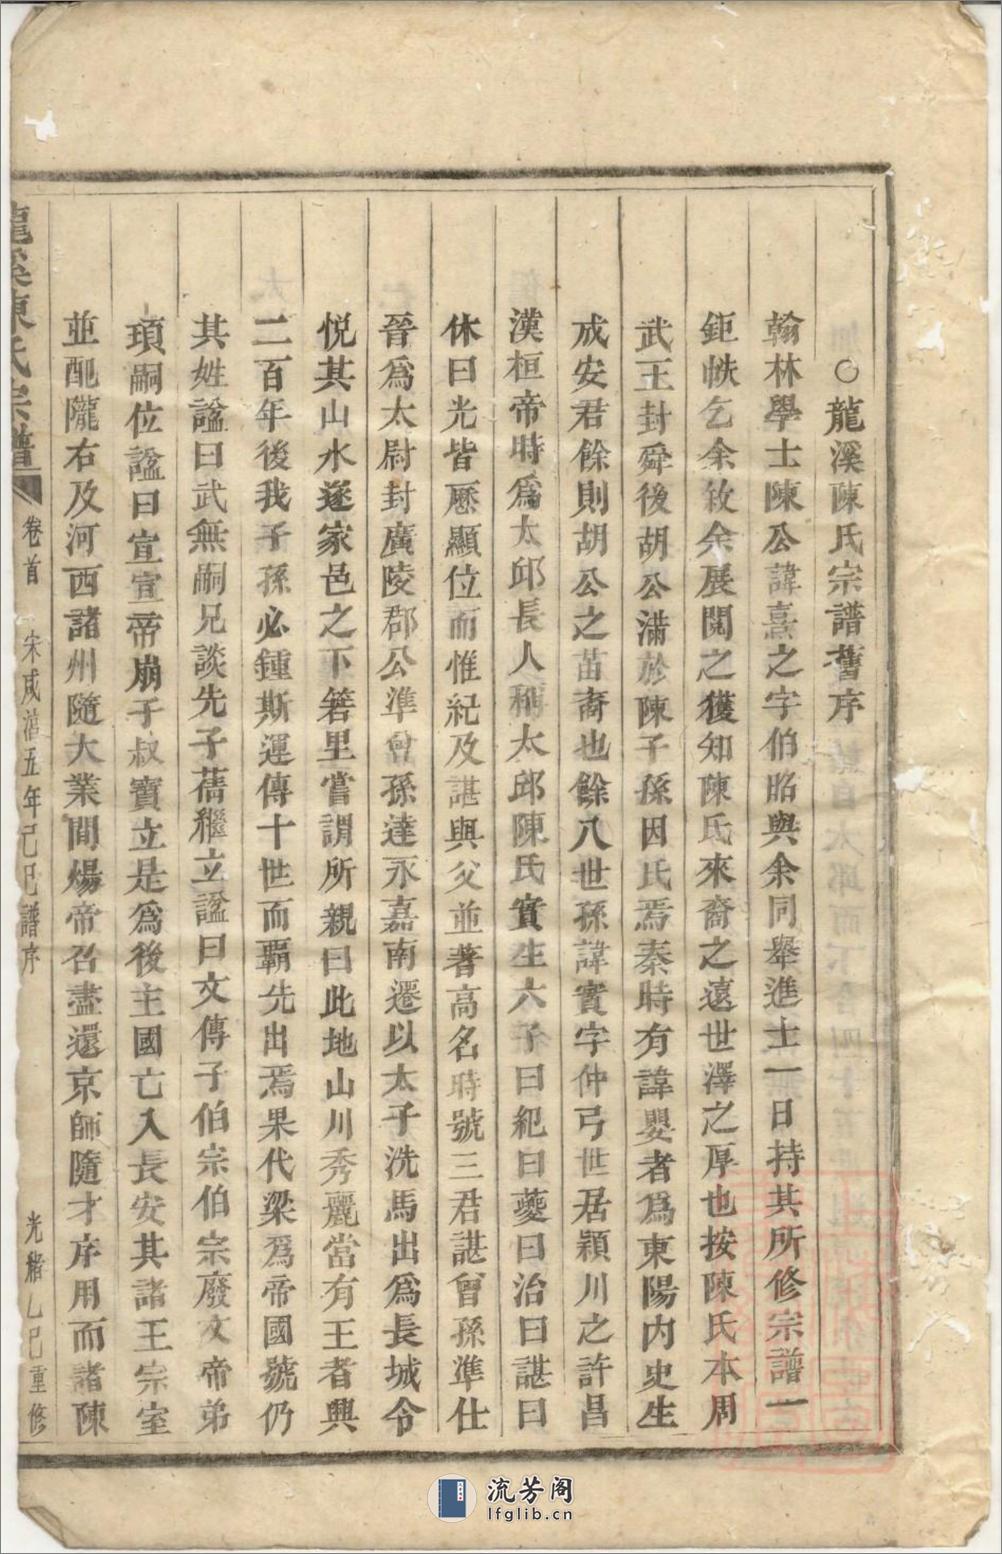 ○龍溪陳氏宗譜舊序
翰林學士陳公諱熹之字伯昭與余同舉進士一日持其所修宗譜一
鉅帙乞余敘余展閱之獲知陳氏來裔之遠世澤之厚也按陳氏本周
武王封舜後胡公滿於陳子孫因氏焉秦時有諱嬰者爲東陽內史生
成安君餘則胡公之苗裔也餘八世孫諱實字仲弓世居潁川之許昌
漢桓帝時爲太邱長人稱太邱陳氏實生六子曰紀曰夔曰治曰諶曰
休曰光皆歷顯位而惟紀及諶與父並著高名時號三君諶曾孫準仕
晉爲太尉封廣陵郡公準曾孫達永嘉南遷以太子洗馬出爲長城令
悦其山水遂家邑之下箬里嘗謂所親曰此地山川秀麗當有王者興
二百年後我子孫必鍾斯運傳十世而霸先出焉果代梁爲帝國號仍
其姓諡曰武無嗣兄談先子蒨繼立諡曰文傳子伯宗伯宗廢文帝弟
頊嗣位諡曰宣宣帝崩子叔寶立是爲後主國亡入長安其諸王宗室
並配隴右及河西諸州隨大業間煬帝召盡還京師隨才序用而諸陳
龍溪陳氏宗譜 卷首 宋咸淳五年己巳譜序 光緒乙巳重修
流芳阁
lfglib.cn